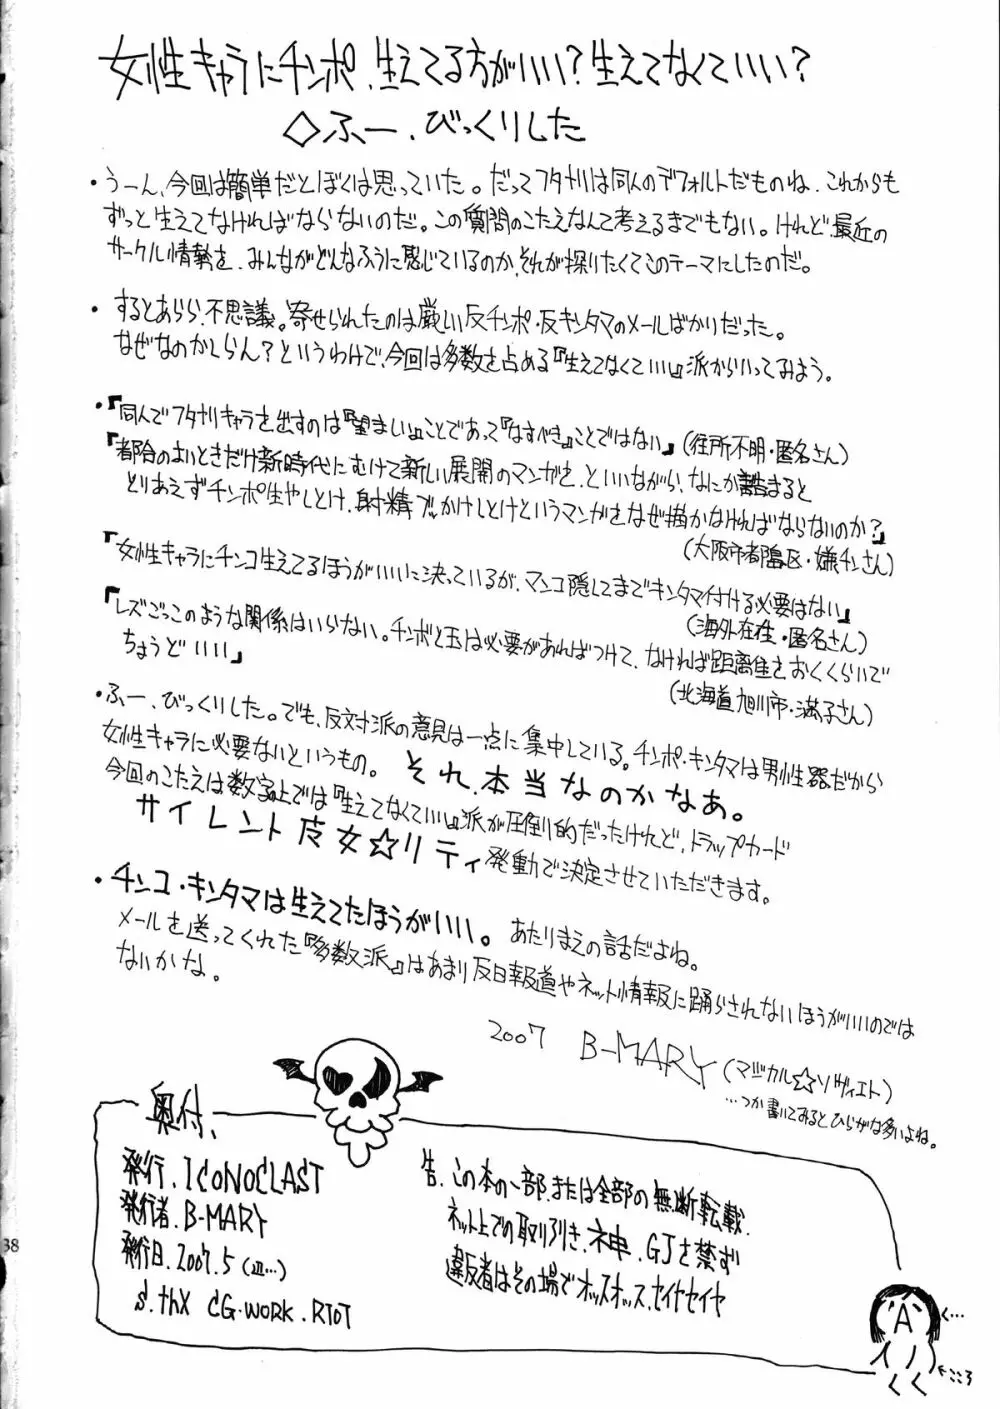 女性キャラにチンポ、生えてる方がいい?生えてなくていい?
◇ふー、びっくりした
・うーん、今回は簡単だとぼくは思っていた。だってフタナリは同人のデフォルトだものね、これからも
ずっと生えてなければならないのだ。この質問のこたえなんて考えるまでもない。けれど、最近の
サークル情勢を、みんながどんなふうに感じているのか、それが探りたくてこのテーマにしたのだ。
・するとあらら、不思議。寄せられたのは厳しい反チンポ・反キンタマのメールばかりだった。
なぜなのかしらん?というわけで、今回は多数を占める『生えてなくていい』派からいってみよう。
・『同人でフタナリキャラを出すのは『望ましい』ことであって『なすべき』ことではない』(住所不明・匿名さん)
『都合のよいときだけ新時代にむけて新しい展開のマンガを、といいながら、なにか詰まると
とりあえずチンポ生やしとけ、射精でぶっかけしとけというマンガをなぜ描かなければならないのか?』
(大阪市都島区・嫌チンさん)
『女性キャラにチンコ生えてるほうがいいに決っているが、マンコ隠してまでキンタマ付ける必要はない』
(海外在住・匿名さん)
『レズごっこのような関係はいらない。チンポと玉は必要があればつけて、なければ距離をおくくらいで
ちょうどいい』
(北海道旭川市・満子さん)
・ふー、びっくりした。でも、反対派の意見は一点に集中している。チンポ・キンタマは男性器だから
女性キャラに必要ないというもの。それ、本当なのかなあ。
今回のこたえは数字上では『生えてなくていい』派が圧倒的だったけれど、トラップカード
サイレント皮女☆リティ発動で決定させていただきます。
・チンコ・キンタマは生えてたほうがいい。あたりまえの話だよね。
メールを送ってくれた『多数派』はあまり反日報道やネット情報に踊らされないほうがいいのでは
ないかな。
2007 B-MARY(マジカル☆ソヴィエト)
…つか書いてみるとひらがな多いよね。
奥付、
発行、ICONOCLAST
発行者、B-MARY
発行日、2007.5
S.thX CG-WORK.RIOT
告、この本の一部、または全部の無断転載、
ネット上での取り引き、神、GJを禁ず
違反者はその場でオッスオッス、セイヤセイヤ
く…
A
←こころ
38